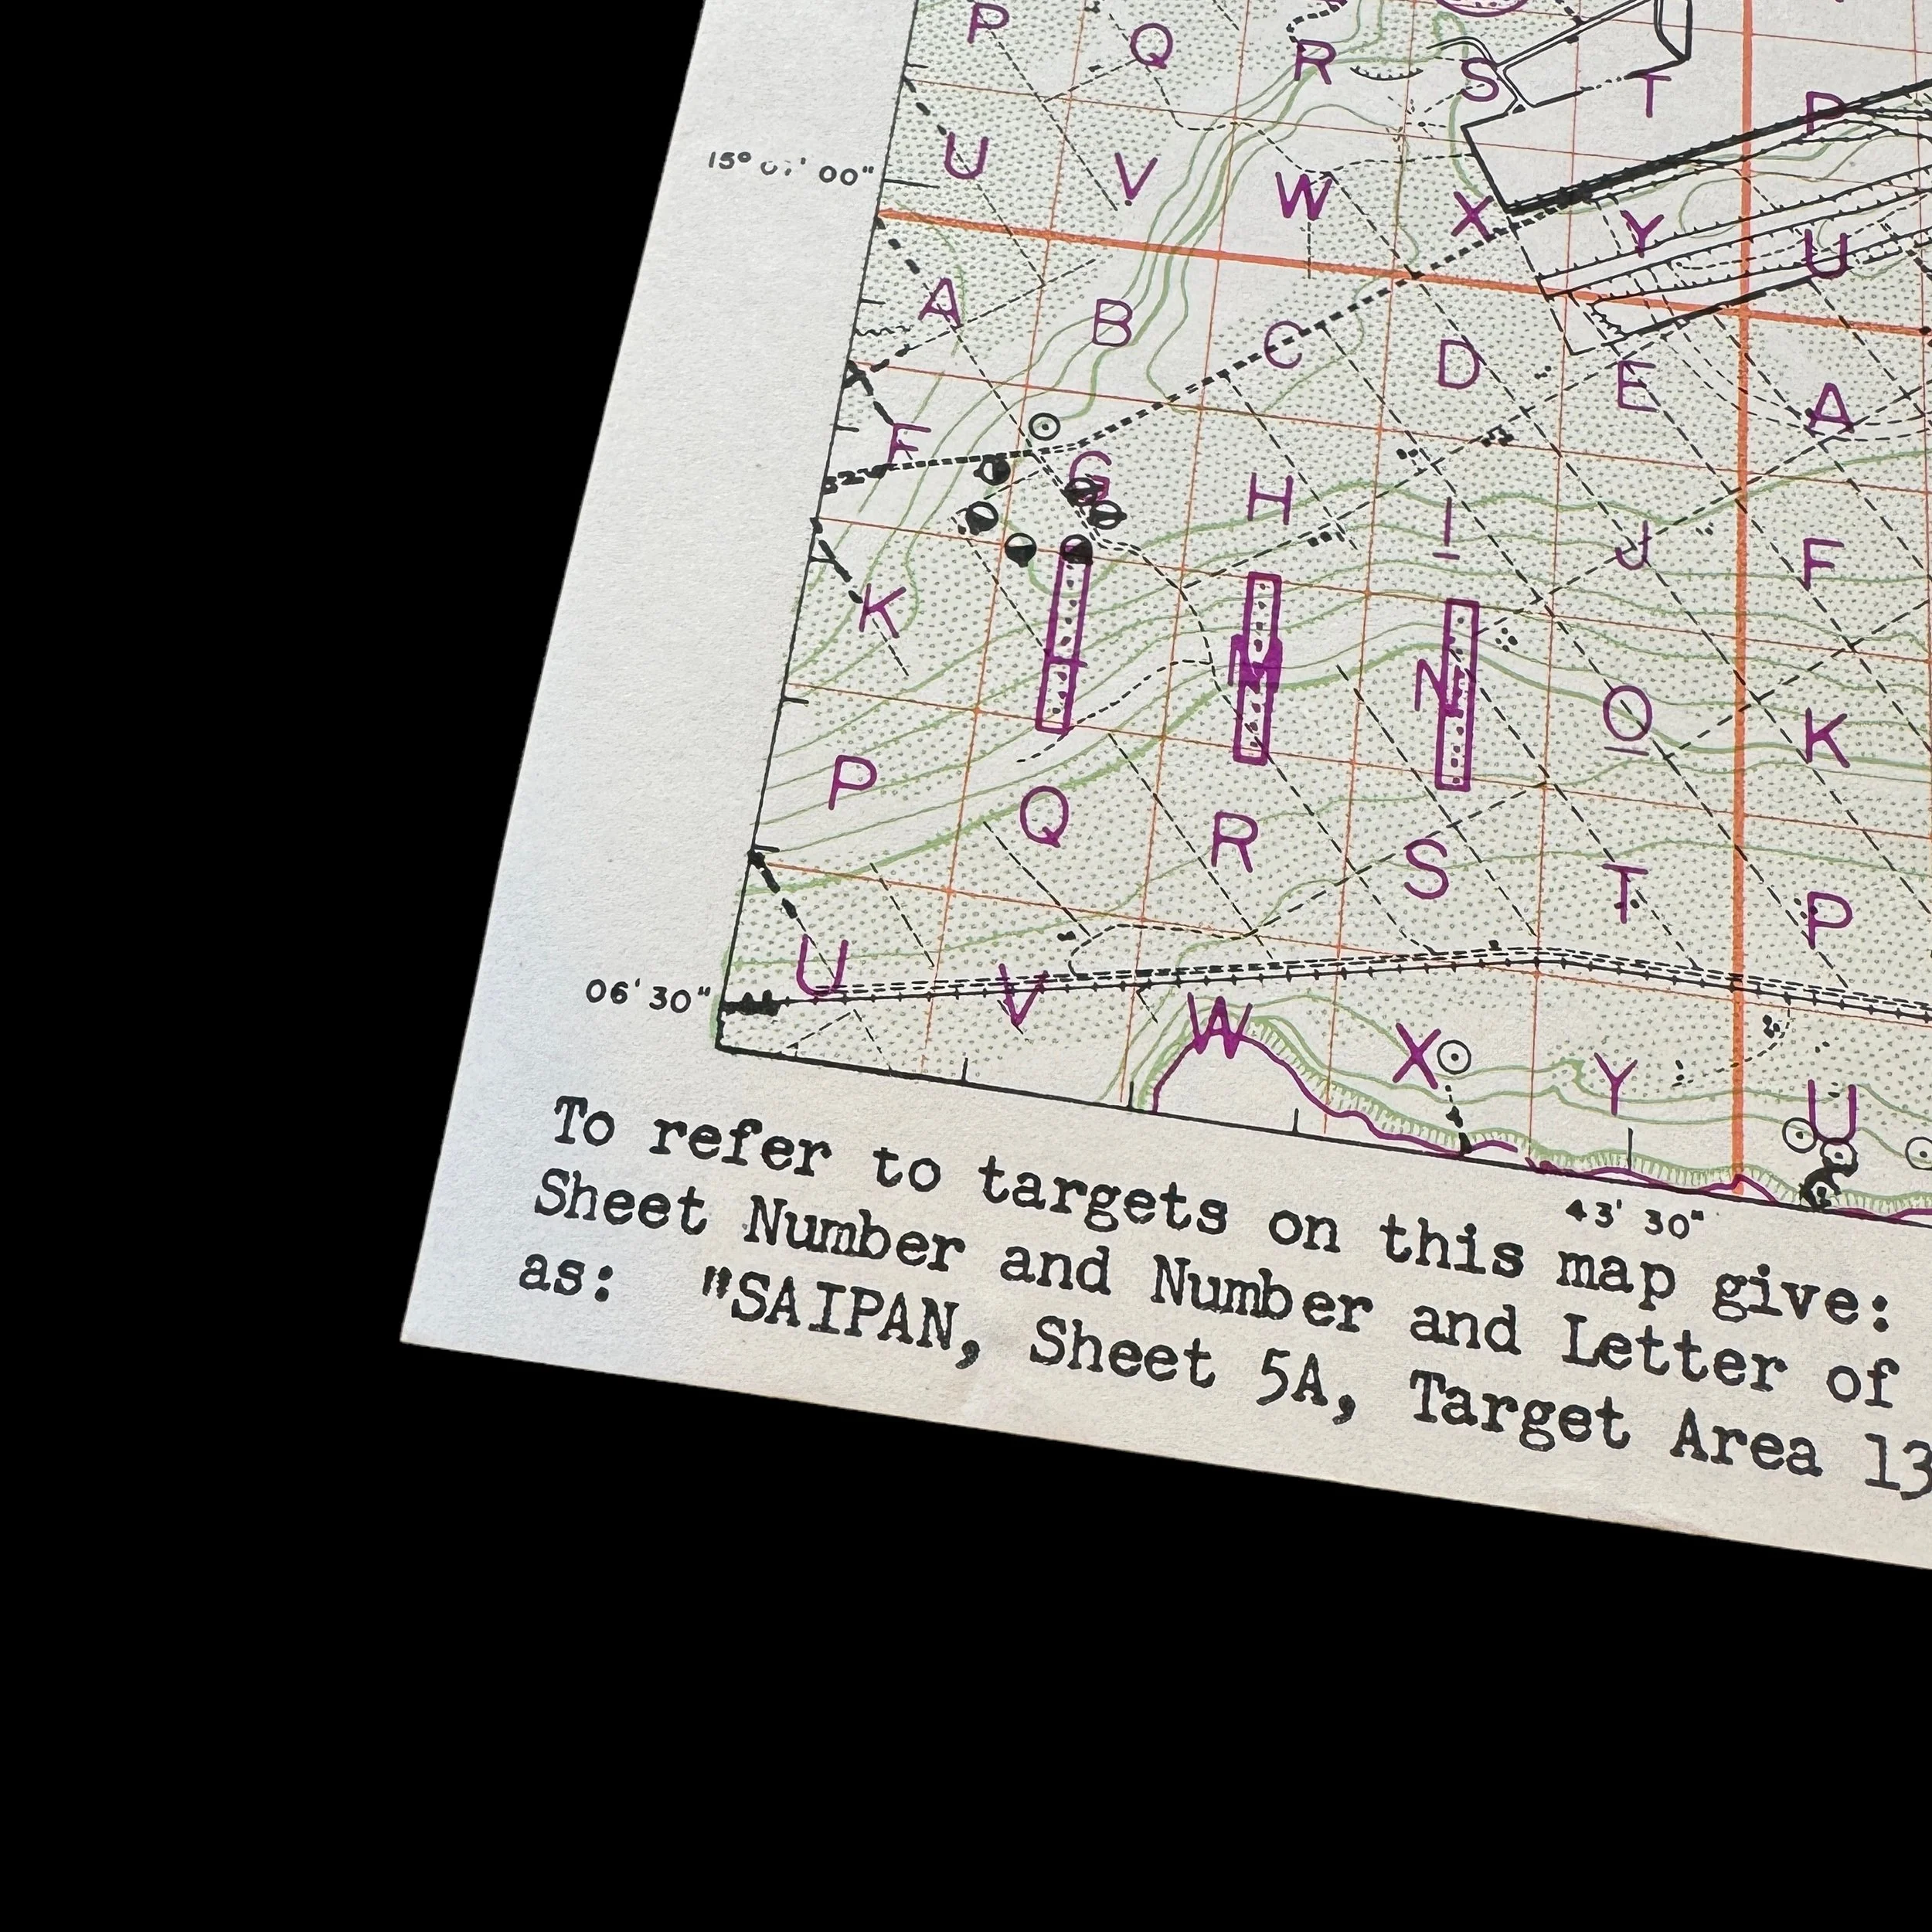 P Q R S T P
15° 07' 00"
U V W X Y U
A B C D E A
F G H I J F
K M N O K
P Q R S T P
U V W X Y U
06' 30"
43' 30"
To refer to targets on this map give:
Sheet Number and Number and Letter of
as: "SAIPAN, Sheet 5A, Target Area 13